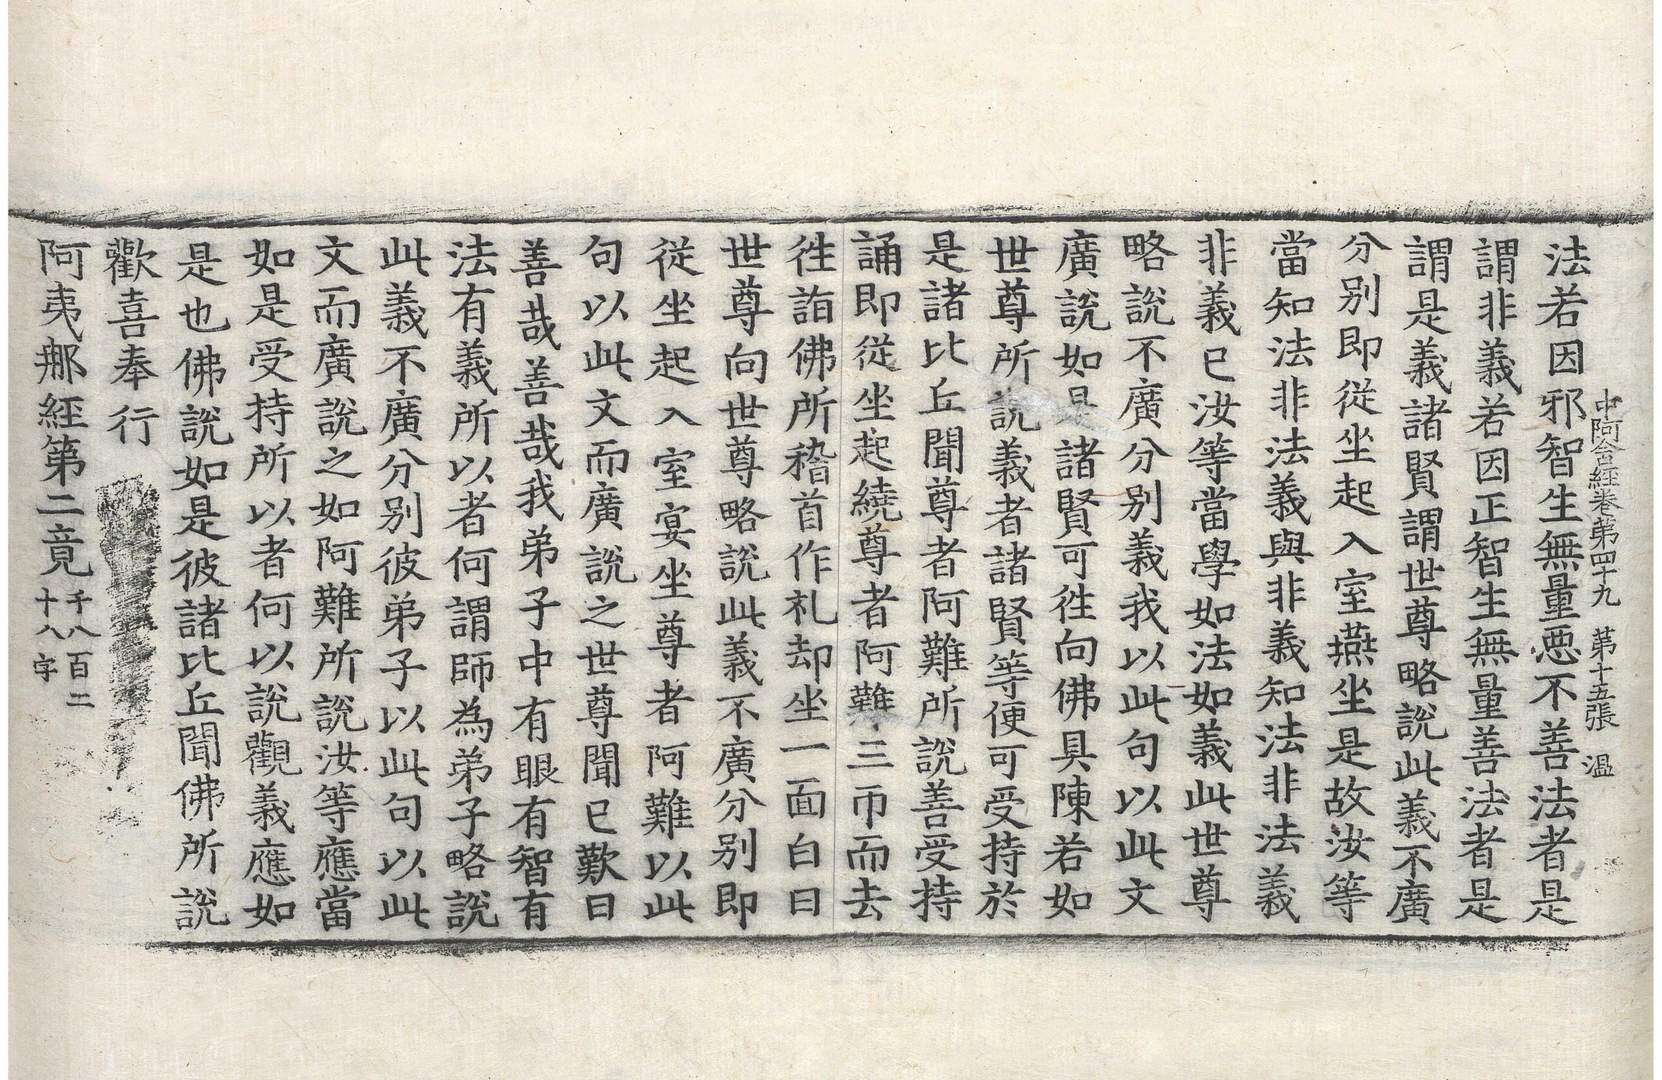 中阿含経卷第四十九　第十五張　温
法若因邪智生無量悪不善法者是
謂非義若因正智生無量善法者是
謂是義諸賢謂世尊略說此義不廣
分别即從坐起入室燕坐是故汝等
當知法非法義與非義知法非法義
非義已汝等當學如法如義此世尊
略說不廣分别義我以此句以此文
廣說如是諸賢可徃向佛具陳若如
世尊所說義者諸賢等便可受持於
是諸比丘聞尊者阿難所說善受持
誦即從坐起繞尊者阿難三帀而去
徃詣佛所稽首作礼却坐一面白曰
世尊向世尊略說此義不廣分别即
從坐起入室宴坐尊者阿難以此
句以此文而廣說之世尊聞已歎曰
善哉善哉我弟子中有眼有智有
法有義所以者何謂師為弟子略說
此義不廣分别彼弟子以此句以此
文而廣說之如阿難所說汝等應當
如是受持所以者何以說觀義應如
是也佛說如是彼諸比丘聞佛所說
歡喜奉行
阿夷郍經第二竟 千八百二十八字